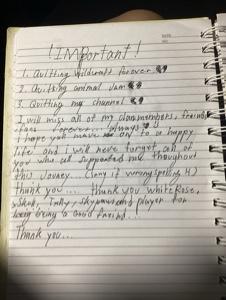 !IMPortant!
1. Quitting Wildcraft forever
2. Quitting animal Jam
3. Quitting my channel
I will miss all of my clan members, friends
fans forever... always
I hope you have on to a happy
life and i will never forget all of
you who all supported me thoughout
this Jouney... (Sorry if wrong spelling)
thank you.... thank you white Rose,
Tally, sky and player for
being a good friend..!
Thank you...